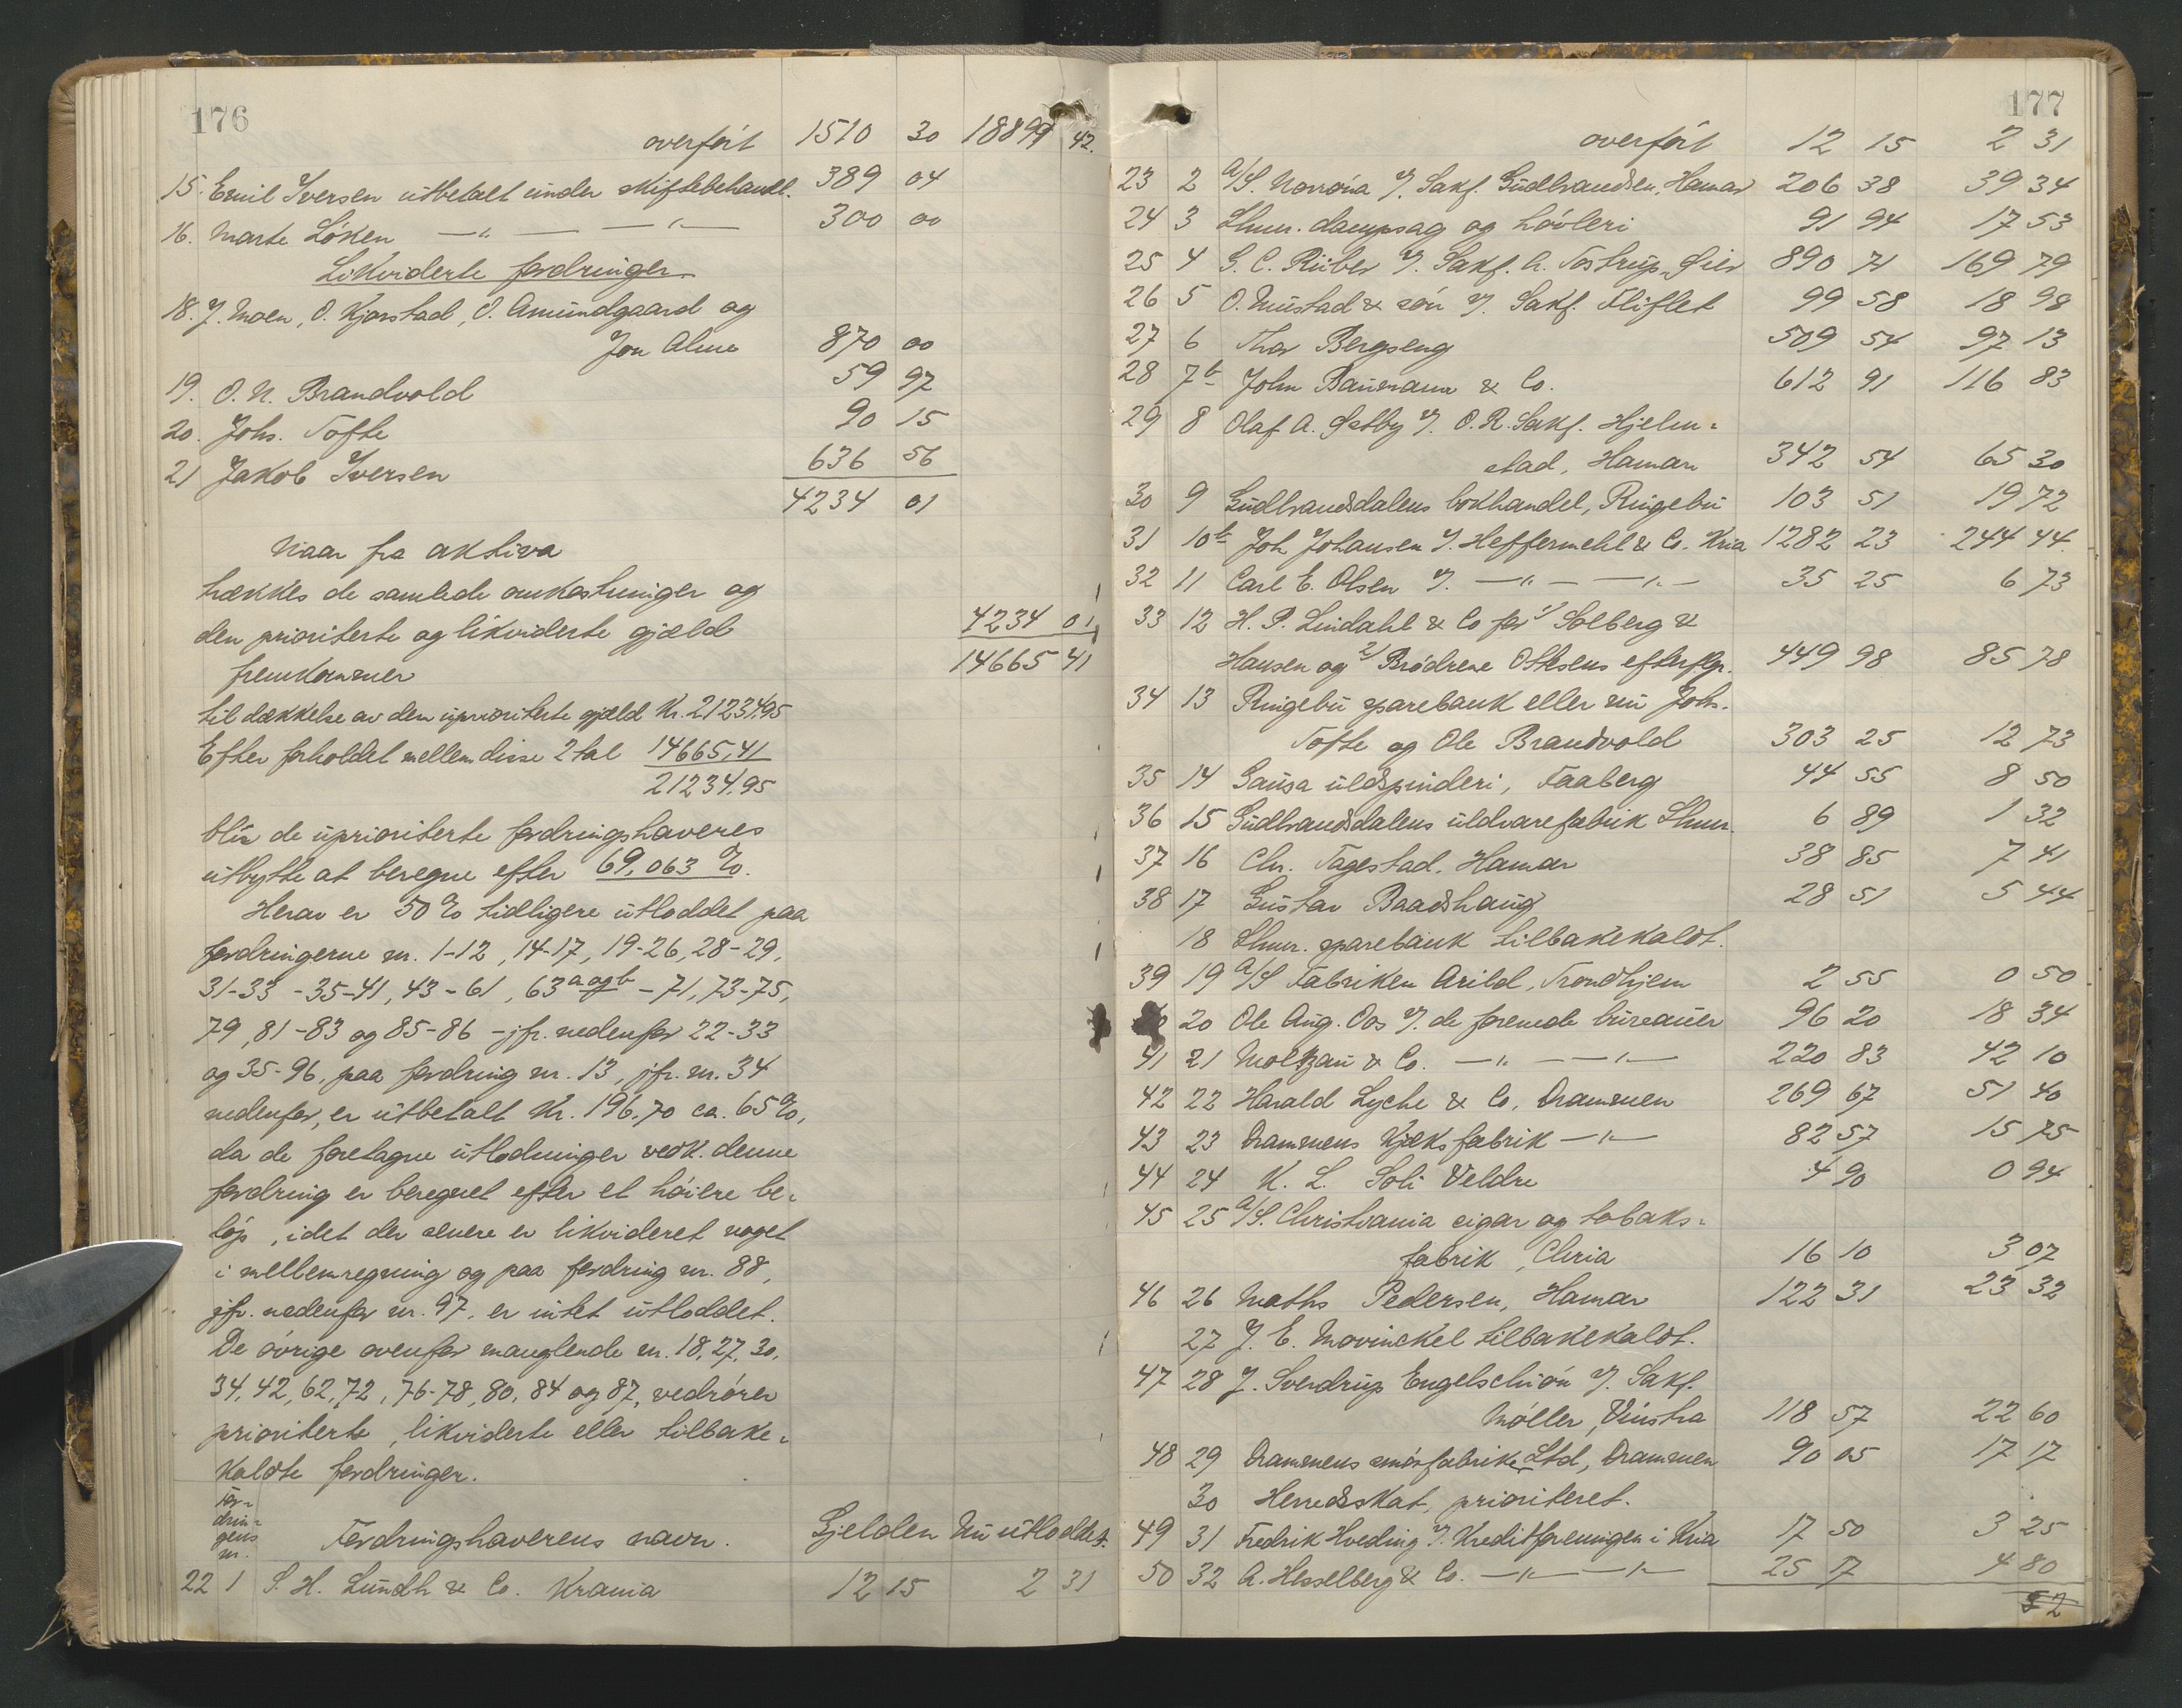 176
overført 1510 30 18899 42.
15. Emil Iversen utbetalt under skiftebehandl. 389 04
16. Marte Løken —"— —"— 300 00
Likviderte fordringer.
18. J. Moen, O. Kjorstad, O. Amundgaard og
Jon Alme 870 00
19. O. N. Brandvold 59 97
20. Johs. Tofte 90 15
21 Jakob Iversen 636 56
4234 01
Naar fra aktiva
trækkes de samlede omkostninger og
den prioriterte og likviderte gjæld 4234 01
fremkommer 14665 41
til dækkelse av den uprioriterte gjæld Kr. 21234,95
Efter forholdet mellem disse 2 tal 14665,41
21234,95
blir de uprioriterte fordringshaveres
utbytte at beregne efter 69,063 %.
Herav er 50 % tidligere utloddet paa
fordringerne nr. 1-12, 14-17, 19-26, 28-29,
31-33 - 35-41, 43-61, 63 a og b - 71, 73-75,
79, 81-83 og 85-86 - jfr. nedenfor 22-33
og 35-96, paa fordring nr. 13, jfr. nr. 34
nedenfor, er utbetalt Kr. 196,70 ca. 65 %,
da de foretagne utlodninger vedk. denne
fordring er beregnet efter et høiere be-
løp, idet der senere er likvideret noget
i mellemregning og paa fordring nr. 88,
jfr. nedenfor nr. 97, er intet utloddet.
De øvrige ovenfor manglende nr. 18, 27, 30,
34, 42, 62, 72, 76-78, 80, 84 og 87, vedrører
prioriterte, likviderte eller tilbake-
kaldte fordringer.
For-
drin-
gens
nr. Fordringshaverens navn. Gjelden Nu utloddet.
22 1 S. H. Lundh & Co. Krania 12 15 2 31
177
overført 12 15 2 31
23 2 A/S. Norrøna v/. Sakf. Gudbrandsen, Hamar 206 38 39 34
24 3 Lhmr. dampsag og høvleri 91 94 17 53
25 4 G. C. Rieber v/. Sakf. A. Tostrup, Øier 890 71 169 79
26 5 O. Mustad & søn v/. Sakf. Fliflet 99 58 18 98
27 6 Thor Bergseng 509 54 97 13
28 7b John Baumann & Co. 612 91 116 83
29 8 Olaf A. Østby v/. O.R. Sakf. Hjelm-
stad, Hamar 342 54 65 30
30 9 Gudbrandsdalens bokhandel, Ringebu 103 51 19 72
31 10b Joh. Johansen v/. Heffermehl & Co. Kria 1282 23 244 44
32 11 Carl E. Olsen v/. —"— —"— 35 25 6 73
33 12 H. P. Lindahl & Co for 1/ Solberg &
Hansen og 2/ Brødrene Ottesens efterflgr. 449 98 85 78
34 13 Ringebu sparebank eller nu Johs.
Tofte og Ole Brandvold 303 25 12 73
35 14 Gausa uldspinderi, Faaberg 44 55 8 50
36 15 Gudbrandsdalens uldvarefabrik Lhmr. 6 89 1 32
37 16 Chr. Fagestad, Hamar 38 85 7 41
38 17 Gustav Baadshaug 28 51 5 44
18 Lhmr. sparebank tilbakekaldt.
39 19 A/S Fabriken Arild, Trondhjem 2 55 0 50
20 Ole Aug. Aas v/. de forenede bureauer 96 20 18 34
41 21 Moltzau & Co. —"— —"— 220 83 42 10
42 22 Harald Lyche & Co, Drammen 269 67 51 40
43 23 Drammens Kjæksfabrik —"— 82 57 15 75
44 24 K. L. Soli Veldre 4 90 0 94
45 25 A/S. Christiania cigar og tobaks-
fabrik, Chria 16 10 3 07
46 26 Maths Pedersen, Hamar 122 31 23 32
27 J. E. Mowinckel tilbakekaldt.
47 28 J. Sverdrup Engelschiøn v/. Sakf.
Møller, Vinstra 118 57 22 60
48 29 Drammens smørfabriker Ltd, Drammen 90 05 17 17
30 Herredsskat, prioriteret.
49 31 Fredrik Hveding v/. Kreditforeningen i Kria 17 50 3 25
50 32 A. Hesselberg & Co. —"— —"— 25 17 4 80